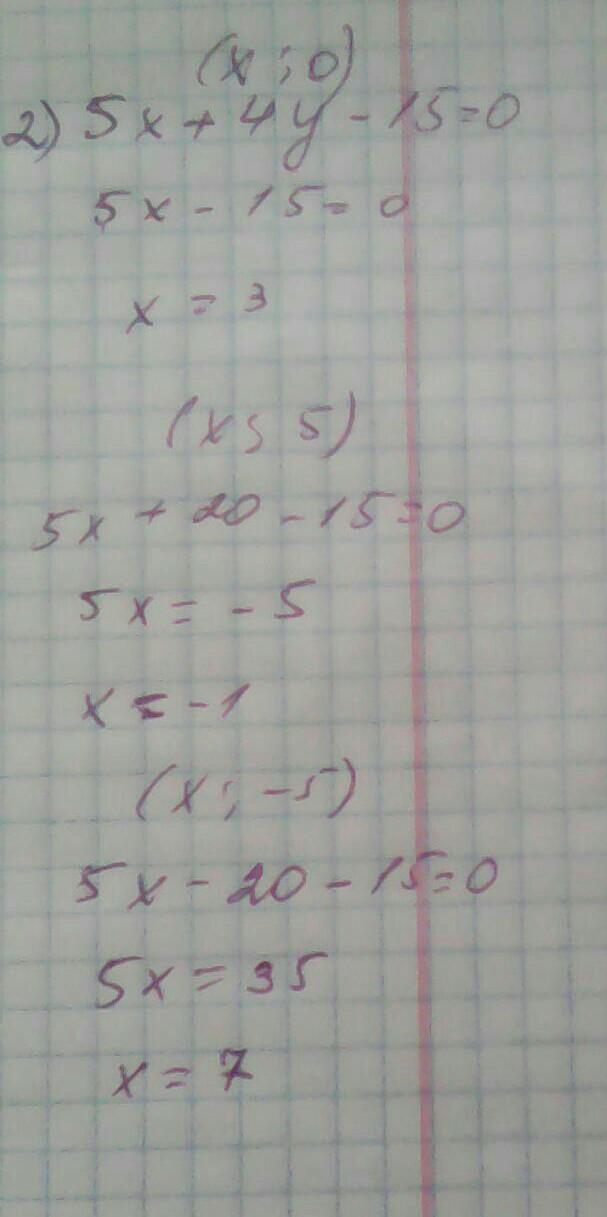 (x ; 0)
2) 5x + 4y - 15 = 0
5x - 15 = 0
x = 3
(x ; 5)
5x + 20 - 15 = 0
5x = - 5
x = - 1
(x ; -5)
5x - 20 - 15 = 0
5x = 35
x = 7